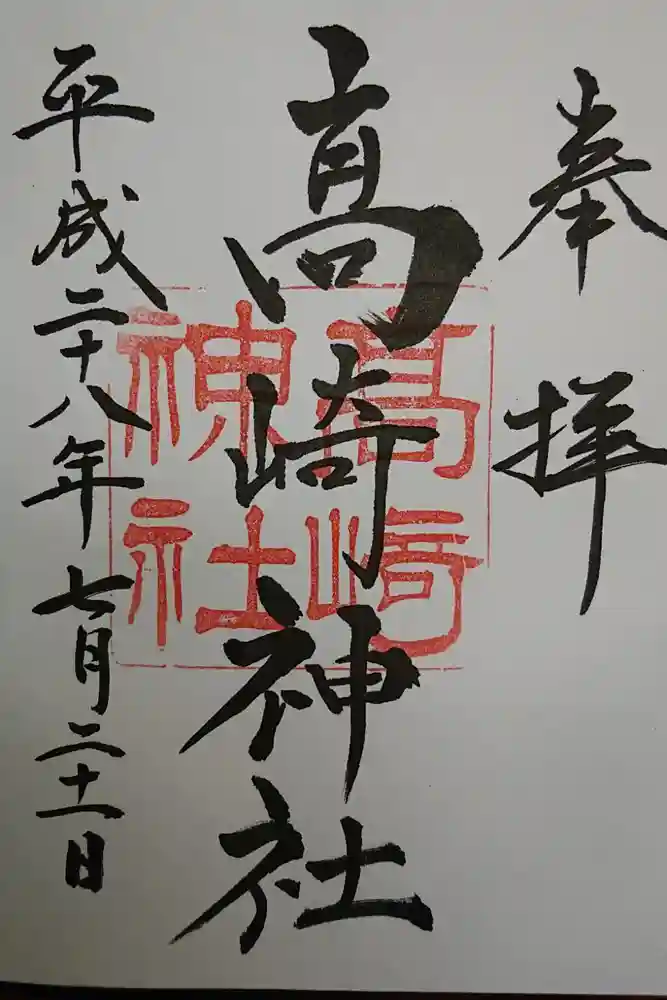 奉拝
髙崎神社
髙崎
神社
平成二十八年七月二十一日